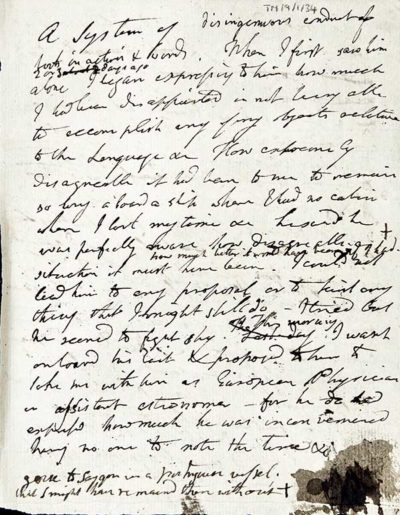 TM/9/1/34
A System of disingenuous conduct of
both in action & words. When I first saw him
2 or 3 days ago
alone I began expressing to him how much
I had been disappointed in not being able
to accomplish any of my objects relative
to the Language &c How extremely
disagreeable it had been to me to remain
so long aboard a ship where I had no cabin
where I lost my time &c he said he
was perfectly aware how disagreeable my +
how much better it would have been
situation it must have been I could not
lead him to any proposal or to hint any
thing that I might still do - I tried but
he seemed to fight shy. This morning
I went
on board his &c & proposed to him to
take me with him as European Physician
or assistant astronomer - for he
how much he was inconvenienced
having no one to note the time &c
gone to Saygon in a portuguese vessel.
that I might have remained there without +